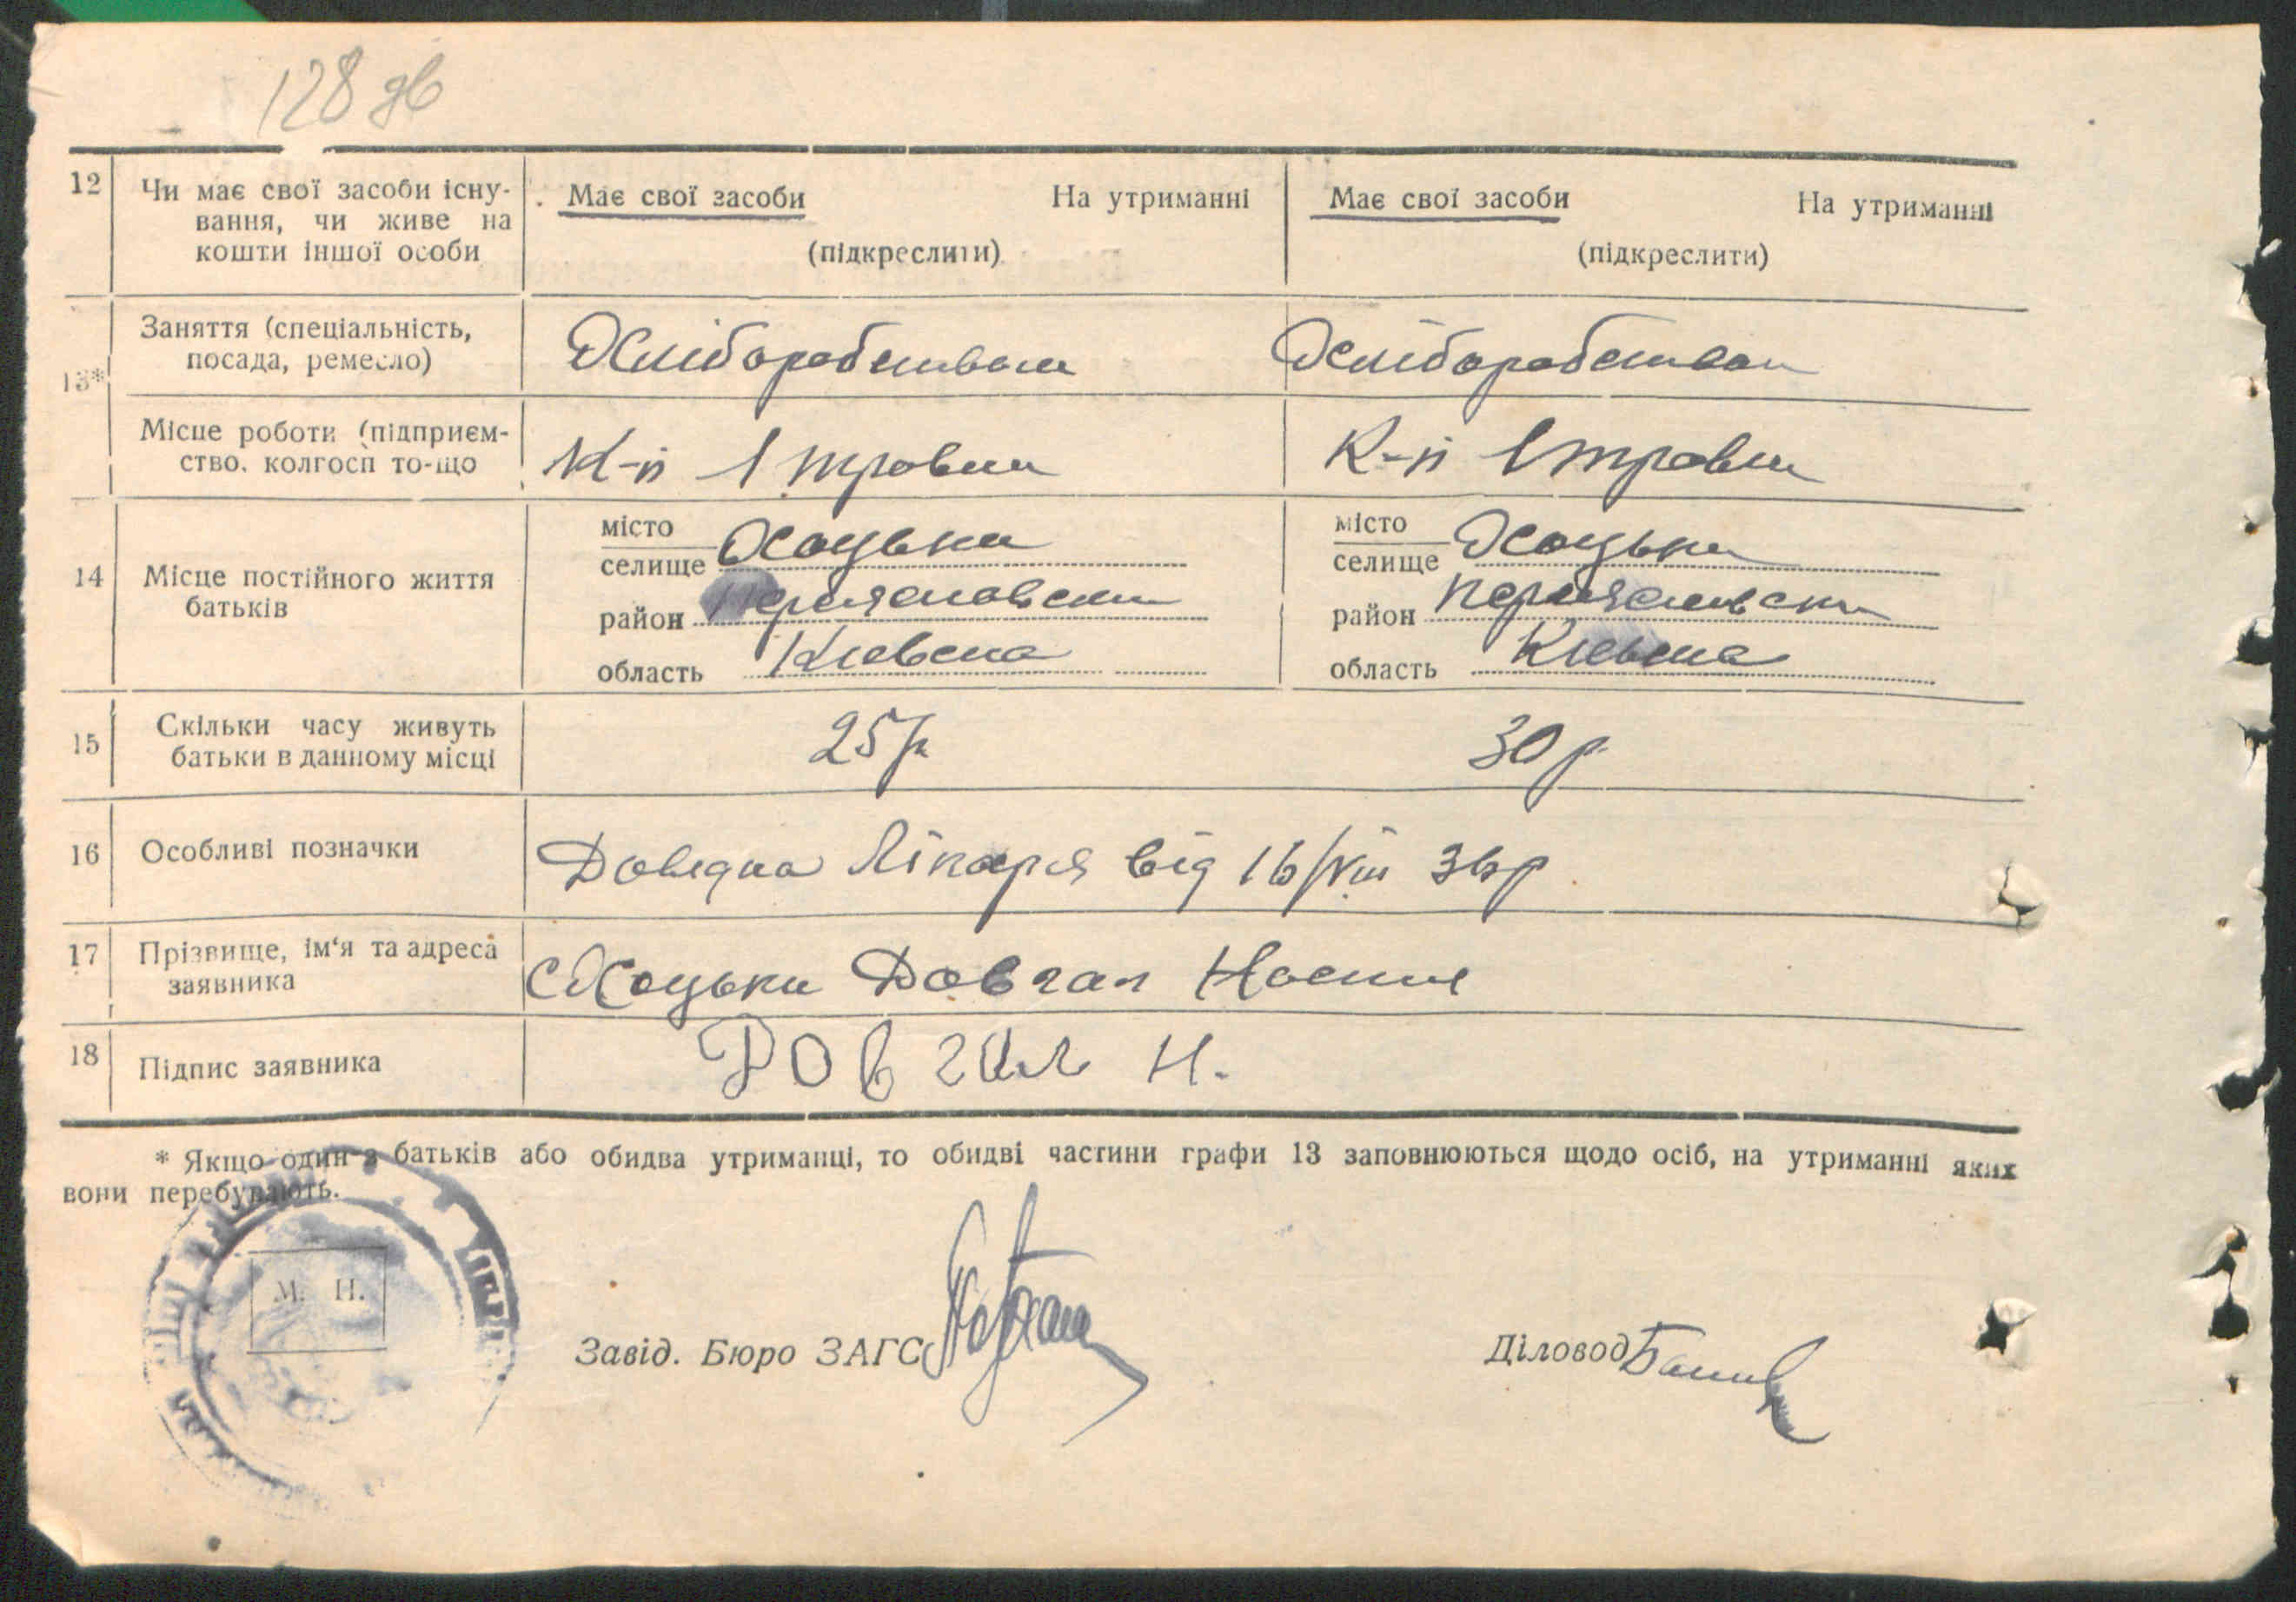 128 зв
12 Чи має свої засоби існу-
вання, чи живе на
кошти іншої особи
Має свої засоби На утриманні
(підкреслити)
Має свої засоби На утриманні
(підкреслити)
13*
Заняття (спеціальність,
посада, ремесло)
Хліборобством Хліборобством
Місце роботи (підприєм-
ство, колгосп то-що
К-п 1 травня К-п 1 травня
14 Місце постійного життя
батьків
місто
селище Хоцьки
район Переяславськи
область Київська
місто
селище Хоцьки
район Переяславськи
область Київска
15 Скільки часу живуть
батьки в данному місці
25 р 30 р
16 Особливі позначки
Довідка Лікаря від 16/VIII 36р.
17 Прізвище, ім'я та адреса
заявника
с Хоцьки Довгал
18 Підпис заявника
Довгал Н.
* Якщо один з батьків або обидва утриманці, то обидві частини графи 13 заповнюються щодо осіб, на утриманні яких
вони перебувають.
М. П.
Завід. Бюро ЗАГС
Діловод